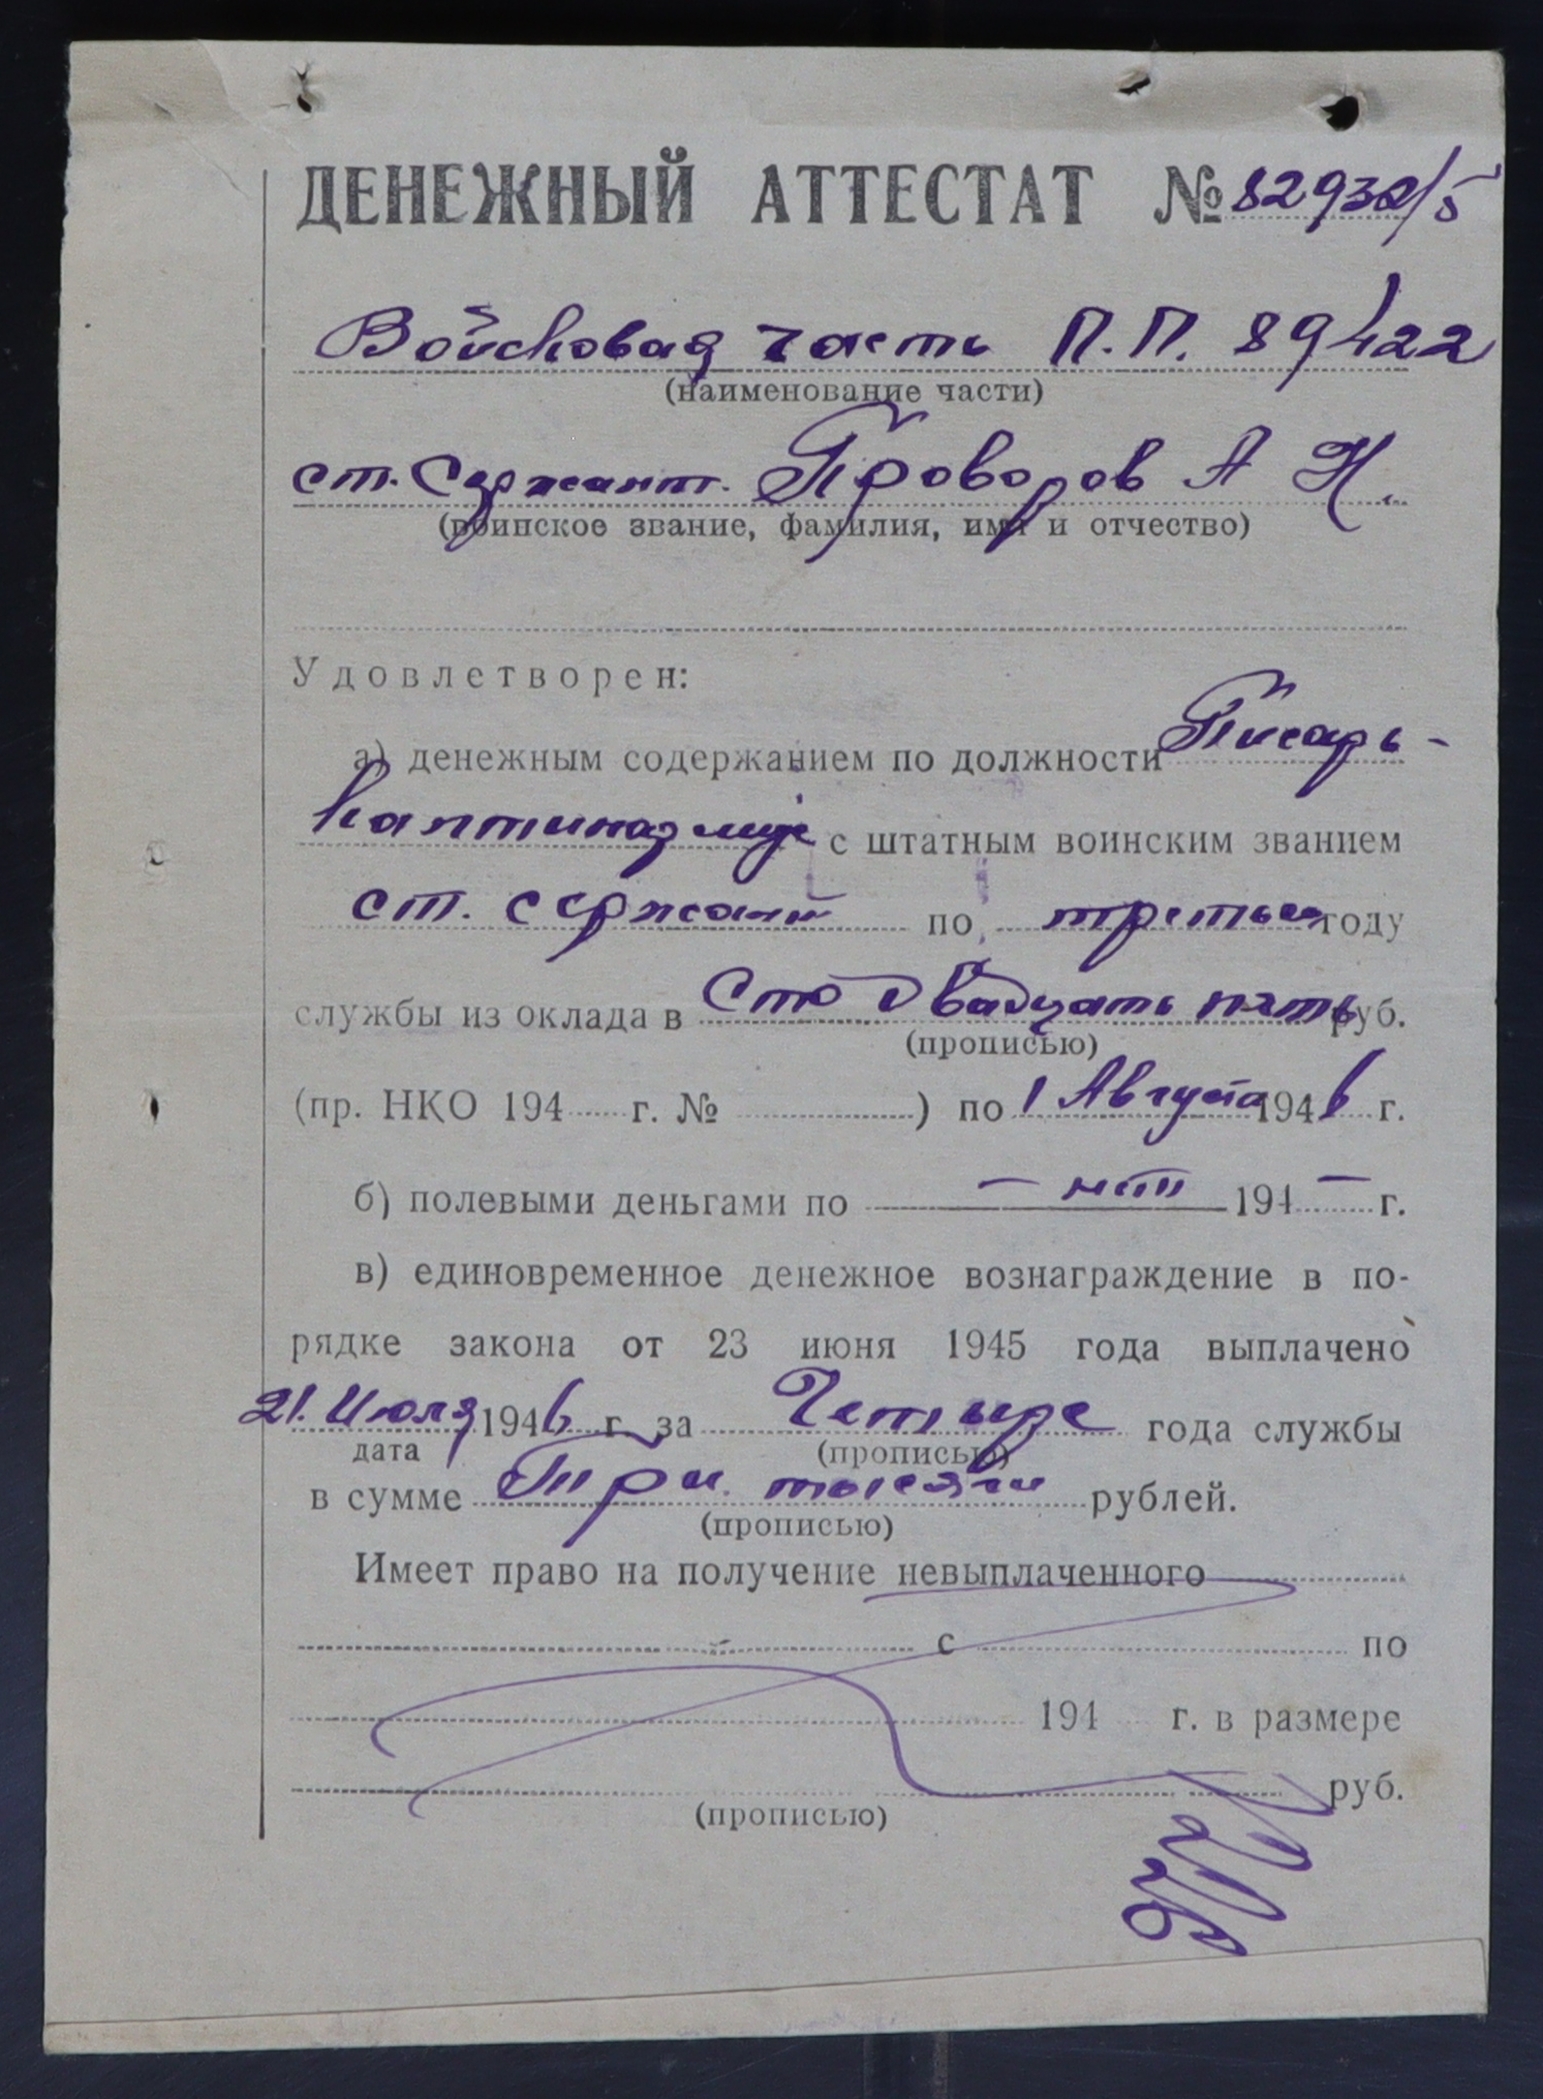 ДЕНЕЖНЫЙ АТТЕСТАТ № 82932/5
Войсковая часть П.П. 89422
(наименование части)
ст. Сержант. Проворов А Н.
(воинское звание, фамилия, имя и отчество)
Удовлетворен:
а) денежным содержанием по должности Писарь-
с штатным воинским званием
ст. сержант по третьем году
службы из оклада в Сто двадцать пять руб.
(прописью)
(пр. НКО 194 г. № ) по 1 Августа 1946 г.
б) полевыми деньгами по — нет 194 — г.
в) единовременное денежное вознаграждение в по-
рядке закона от 23 июня 1945 года выплачено
21. Июля 1946 г. за Четыре года службы
дата (прописью)
в сумме Три тысячи рублей.
(прописью)
Имеет право на получение невыплаченного
с по
194 г. в размере
руб.
(прописью)